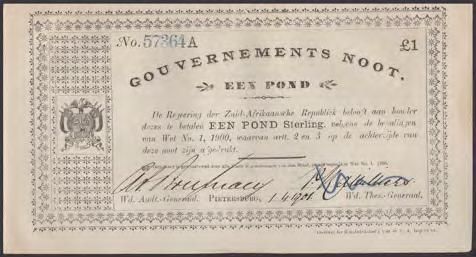 No. 57364 A £1
GOUVERNEMENTS NOOT.
EEN POND
De Regering der Zuid-Afrikaansche Republiek belooft aan houder
dezes te betalen EEN POND Sterling, volgens de bepalingen
van Wet No. 1, 1900, waarvan artt. 2 en 3 op de achterzijde van
deze noot zijn afgedrukt.
Wd. Audt.-Generaal. PIETERSBURG, 1.4.1901 Wd. Thes.-Generaal.